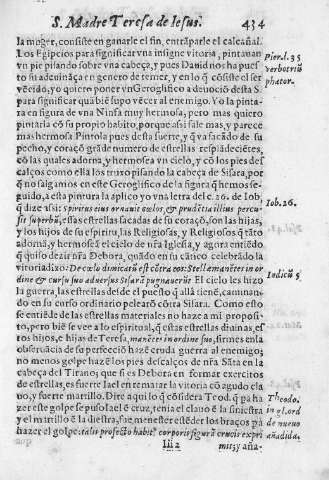 S. Madre Teresa de Iesus. 434
la muger, consiste en ganarle el fin, entráparle el calcañal.
Los Egipcios para significar vna insigne vitoria, pintauan
vn pie pisando sobre vna cabeça, y pues Dauid nos ha pues
to su adeuinãça en genero de temer, y en lo q̃ cósiste el ser
vẽcido, yo quiero poner vn Geroglifico a deuoció desta S.
para significar quã biẽ supo vẽcer al enemigo. Yo la pinta-
ra en figura de vna Ninfa muy hermosa, pero mas quiero
pintarla có su proprio habito, porque assi sale mas, y parece
mas hermosa Pintola pues desta suerte, y q̃ va sacãdo de su
pecho, y coraçó grãde numero de estrellas resplãdeciẽtes,
có las quales adorna, y hermosea vn cielo, y có los pies des-
calços como ella los truxo pisando la cabeça de Sisara, por
q̃ no salgamos en este Geroglifico de la figura q̃ hemos se-
guido, a esta pintura la aplico yo vna letra del c. 26. de Iob,
q̃ dize assi: Spiritus eius ornauit cœlos, & prudẽtia illius percu-
sit superbũ, essas estrellas sacadas de su coraçó, son las hijas,
y los hijos de su espiritu, las Religiosas, y Religiosos q̃ tãto
adornã, y hermoseã el cielo de nr̃a Iglesia, y agora entiẽdo
q̃ quiso dezir nr̃a Debora, quãdo en su cãtico celebrãdo la
vitoria dixo: De cœlo dimicatũ est cótra eos: Stellæ manẽtes in or
dine & cursu suo aduersus Sisarã pugnauerũt El cielo les hizo
la guerra, las estrellas desde el puesto q̃ allà tienẽ, caminan-
do en su curso ordinario pelearó cótra Sisara. Como esto
se entiẽde de las estrellas materiales no haze a mi proposi-
to, pero biẽ se vee a lo espiritual, q̃ estas estrellas diuinas, es
tos hijos, e hijas de Teresa, manẽtes in ordine suo, firmes en la
obseruãcia de su perfecció hazẽ cruda guerra al enemigo;
no menos golpe hazẽ los pies descalços de nr̃a Sãta en la
cabeça del Tirano; que si es Debora en formar exercitos
de estrellas, es fuerte Iael en rematar la vitoria có agudo cla
uo, y fuerte martillo. Dire aqui lo q̃ cósidera Teod. q̃ pa ha
zer este golpe se puso Iael ẽ cruz, tenia el clauo ẽ la siniestra
y el martillo ẽ la diestra, fue menester estẽder los braços pa
hazer el golpe: talis profecto habitꝰ corporis figurã crucis expri
Iii 2 mit; y aña-
Pier. l. 35
verbo triũ
phator.
Iob. 26.
Iudicũ 5
Theodo.
in gl. ord
de nueuo
añadida.